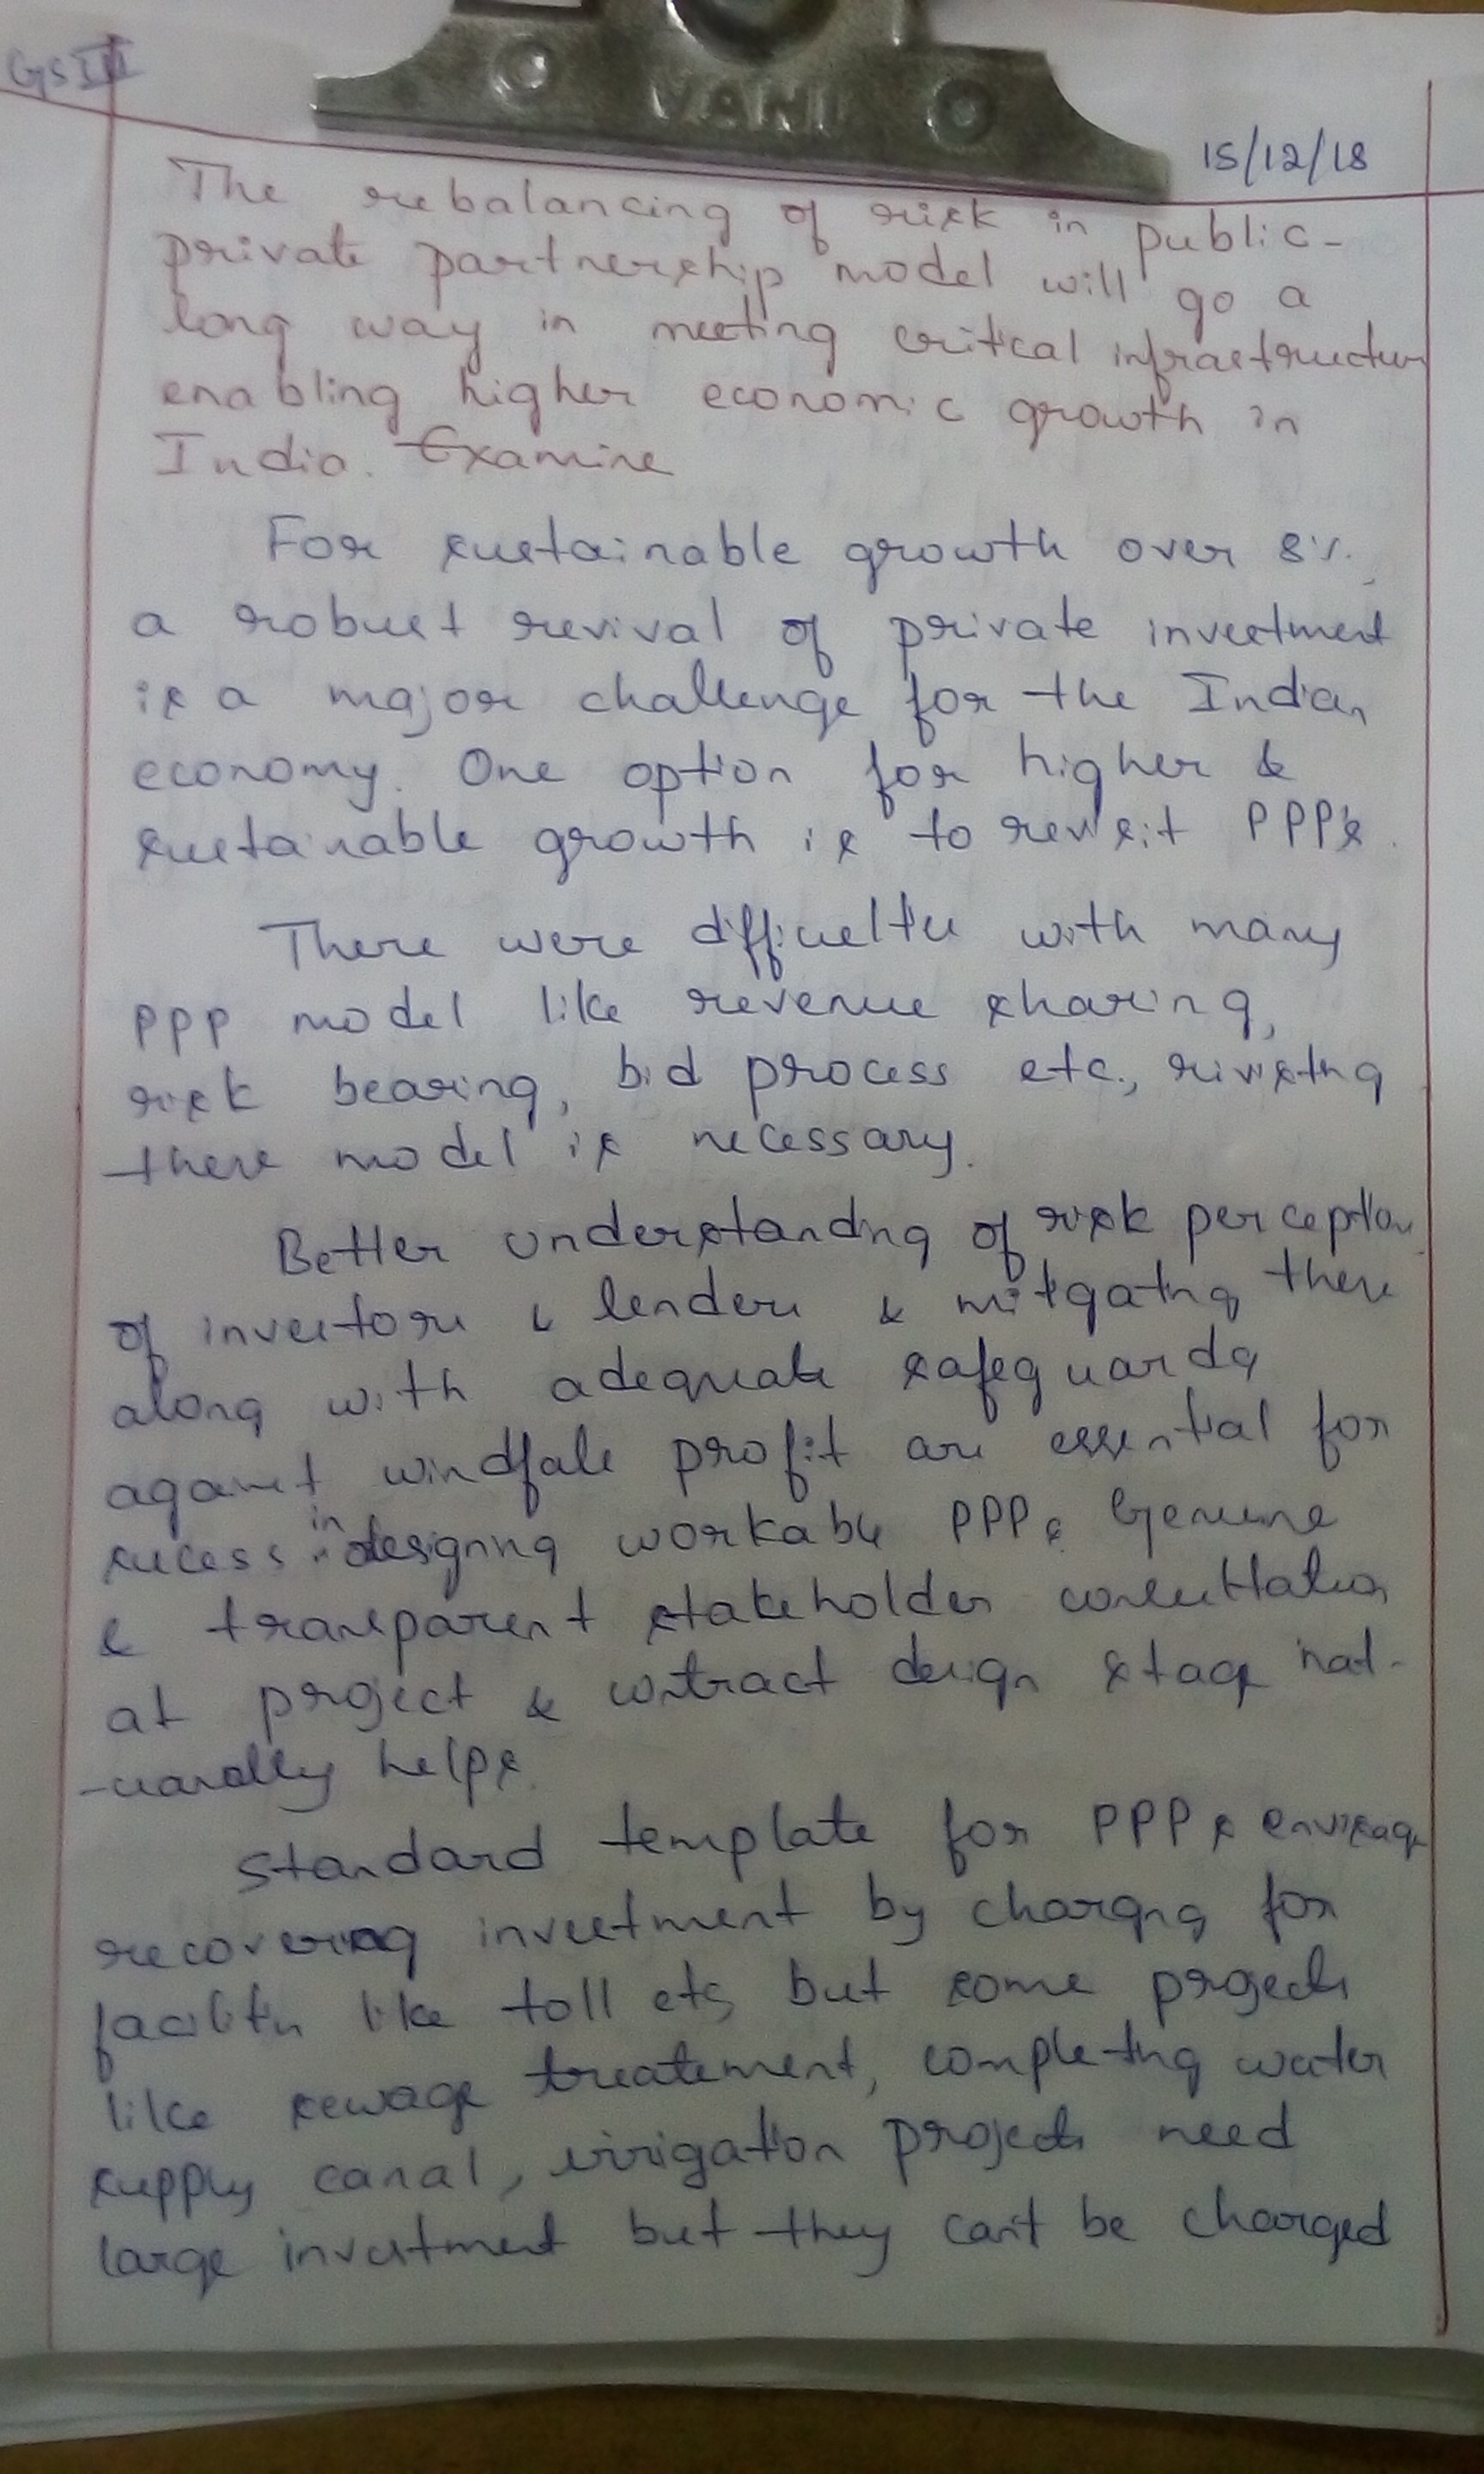 GS III
VANI
15/12/18
The rebalancing of risk in public-
private partnership model will go a
long way in meeting critical infrastructure
enabling higher economic growth in
India. Examine
For sustainable growth over 8%,
a robust revival of private investment
is a major challenge for the Indian
economy. One option for higher &
sustainable growth is to revisit PPP's.
There were difficulties with many
PPP model like revenue sharing,
risk bearing, bid process etc., rivisting
these model is necessary.
Better understanding of risk perception
of investors & lenders & mitigating these
along with adequate safeguards
against windfale profit are essential for
sucess in designing workable PPPs. Genuine
& transparent stakeholder consultation
at project & contract design stage nat-
-uarally helps.
Standard template for PPPs envisage
recovering investment by charging for
facilities like toll etc, but some projects
like sewage treatement, completing water
supply canal, irrigation projects need
large investment but they can't be charged